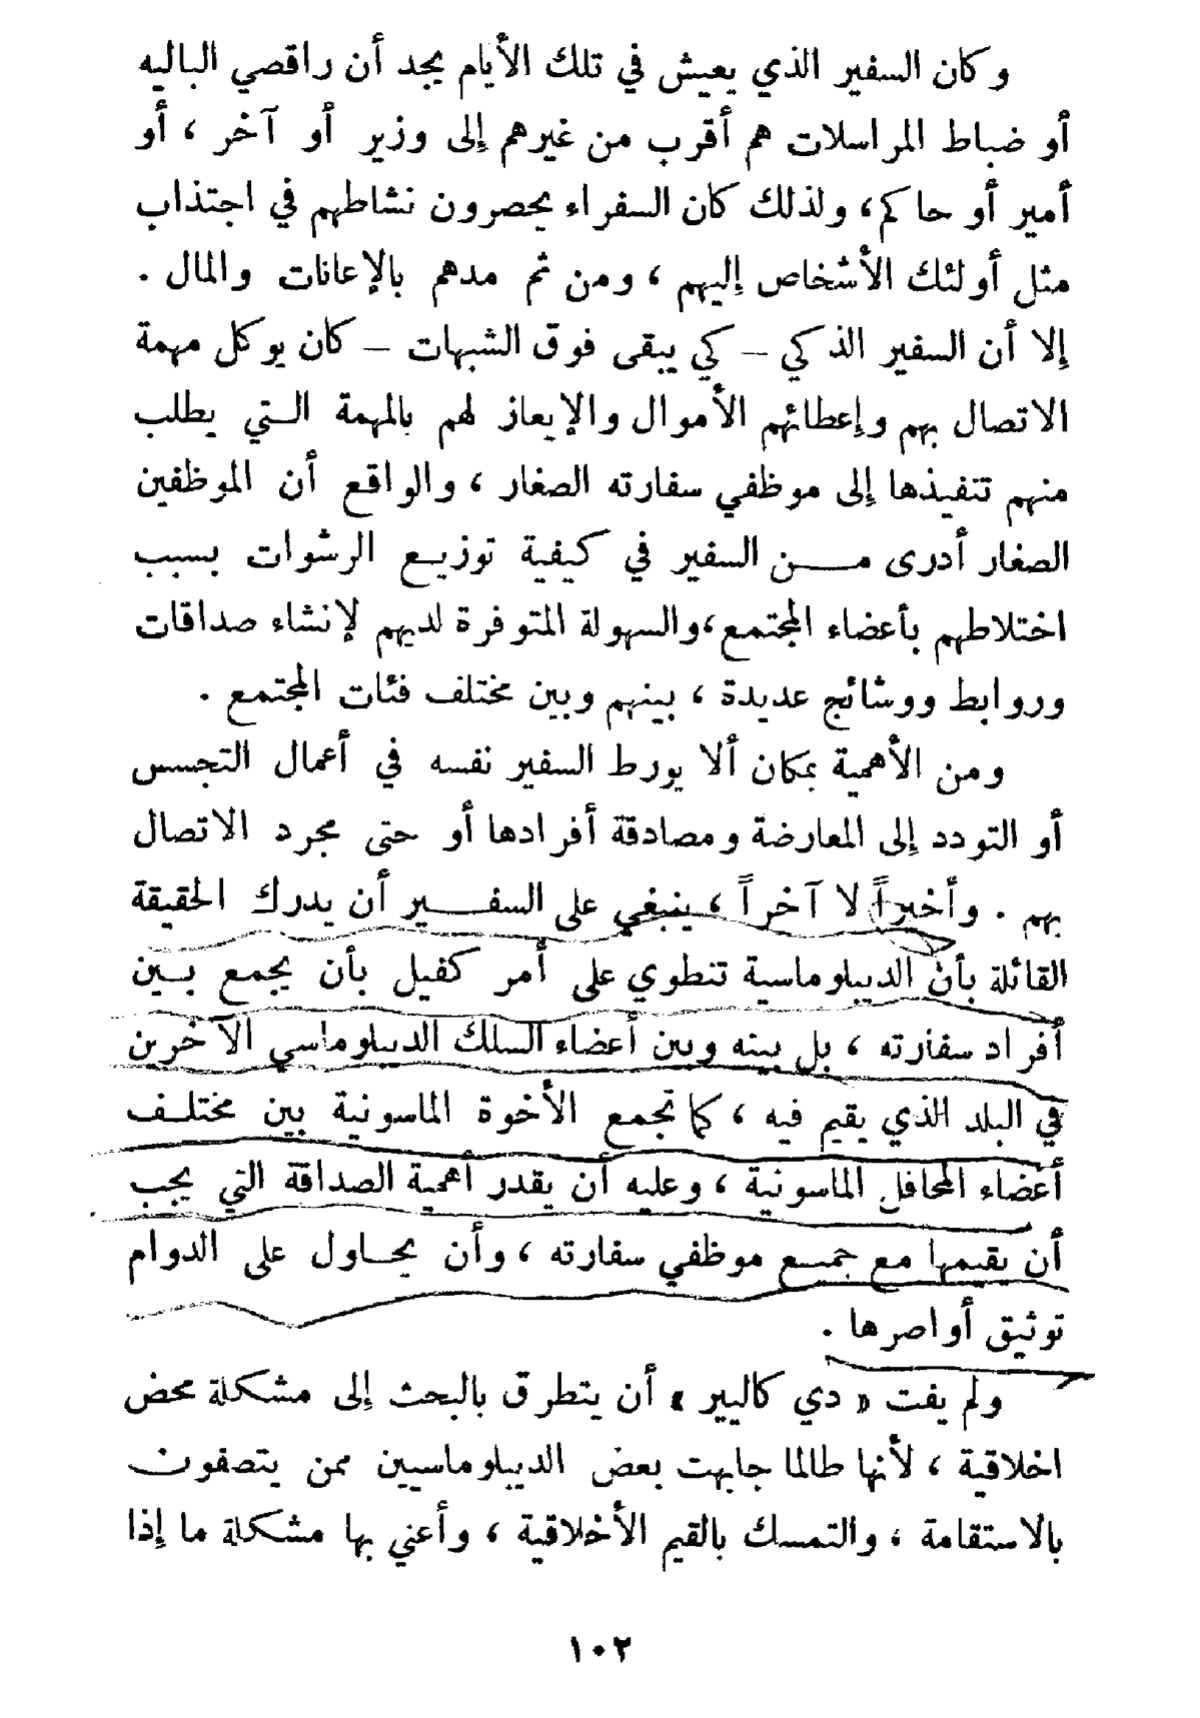 وكان السفير الذي يعيش في تلك الأيام يجد أن راقصي الباليه
أو ضباط المراسلات هم أقرب من غيرهم إلى وزير أو آخر ، أو
أمير أو حاكم، ولذلك كان السفراء يحصرون نشاطهم في اجتذاب
مثل أولئك الأشخاص إليهم ، ومن ثم مدهم بالإعانات والمال .
إلا أن السفير الذكي – كي يبقى فوق الشبهات – كان يوكل مهمة
الاتصال بهم وإعطائهم الأموال والإيعاز لهم بالمهمة التي يطلب
منهم تنفيذها إلى موظفي سفارته الصغار ، والواقع أن الموظفين
الصغار أدرى من السفير في كيفية توزيع الرشوات بسبب
اختلاطهم بأعضاء المجتمع،والسهولة المتوفرة لديهم لإنشاء صداقات
وروابط ووشائج عديدة ، بينهم وبين مختلف فئات المجتمع .
ومن الأهمية بمكان ألا يورط السفير نفسه في أعمال التجسس
أو التودد إلى المعارضة ومصادقة أفرادها أو حتى مجرد الاتصال
بهم . وأخيراً لا آخراً ، ينبغي على السفير أن يدرك الحقيقة
القائلة بأن الديبلوماسية تنطوي على أمر كفيل بأن يجمع بين
أفراد سفارته ، بل بينه وبين أعضاء السلك الديبلوماسي الآخرين
في البلد الذي يقيم فيه ، كما تجمع الأخوة الماسونية بين مختلف
أعضاء المحافل الماسونية ، وعليه أن يقدر أهمية الصداقة التي يجب
أن يقيمها مع جميع موظفي سفارته ، وأن يحاول على الدوام
توثيق أواصرها .
ولم يفت « دي كاليير » أن يتطرق بالبحث إلى مشكلة محض
اخلاقية ، لأنها طالما جابهت بعض الديبلوماسيين ممن يتصفون
بالاستقامة ، والتمسك بالقيم الأخلاقية ، وأعني بها مشكلة ما إذا
١٠٢